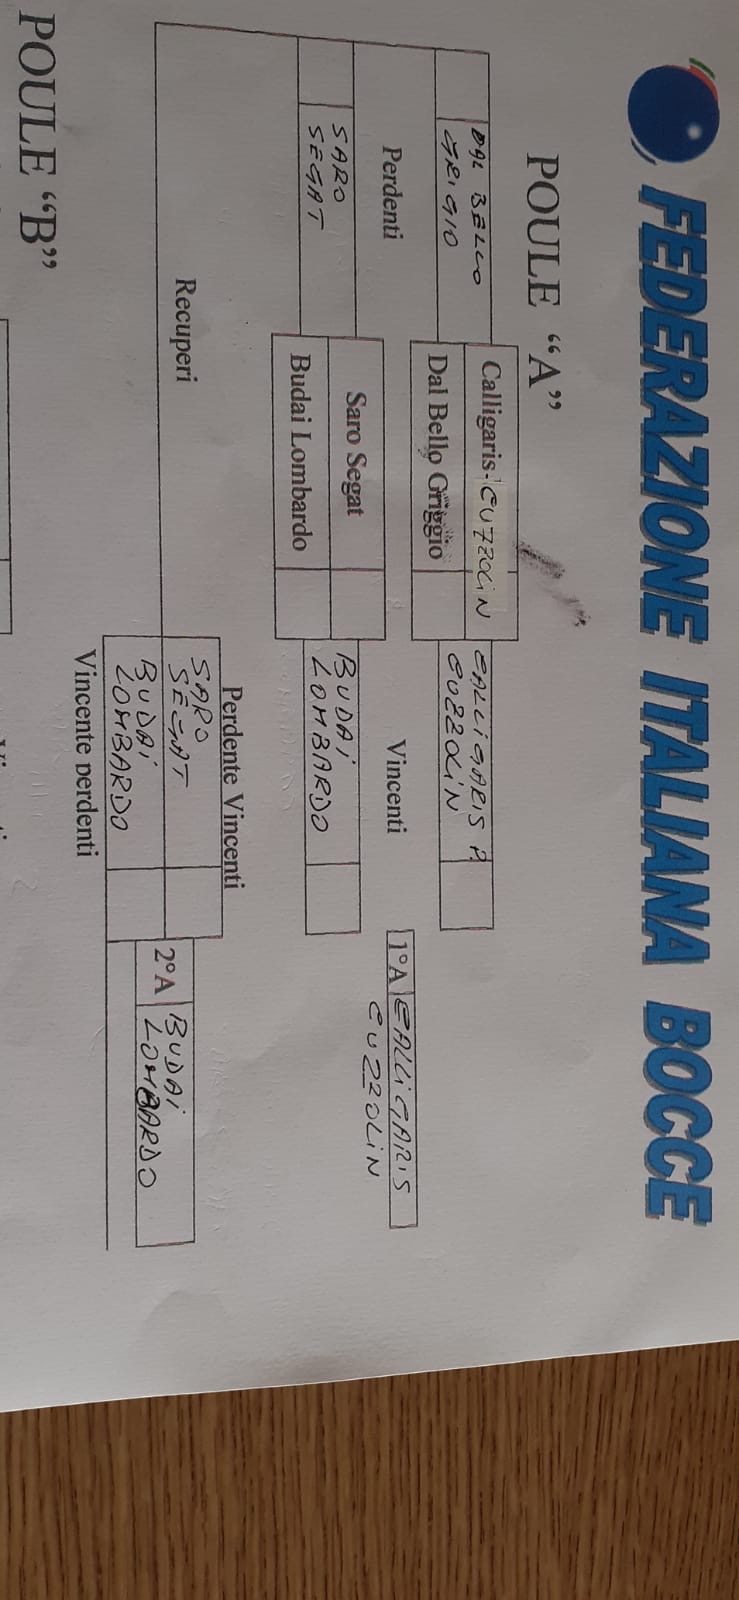 FEDERAZIONE ITALIANA BOCCE
POULE “A”
DAL BELLO
GRIGIO
Calligaris- CUZZOLIN
Dal Bello Griggio
CALLIGARIS P.
CUZZOLIN
Perdenti
Vincenti
1°A CALLIGARIS
CUZZOLIN
SARO
SEGAT
Saro Segat
Budai Lombardo
BUDAI
LOMBARDO
Perdente Vincenti
Recuperi
SARO
SEGAT
BUDAI
LOMBARDO
2°A BUDAI
LOMBARDO
Vincente perdenti
POULE “B”